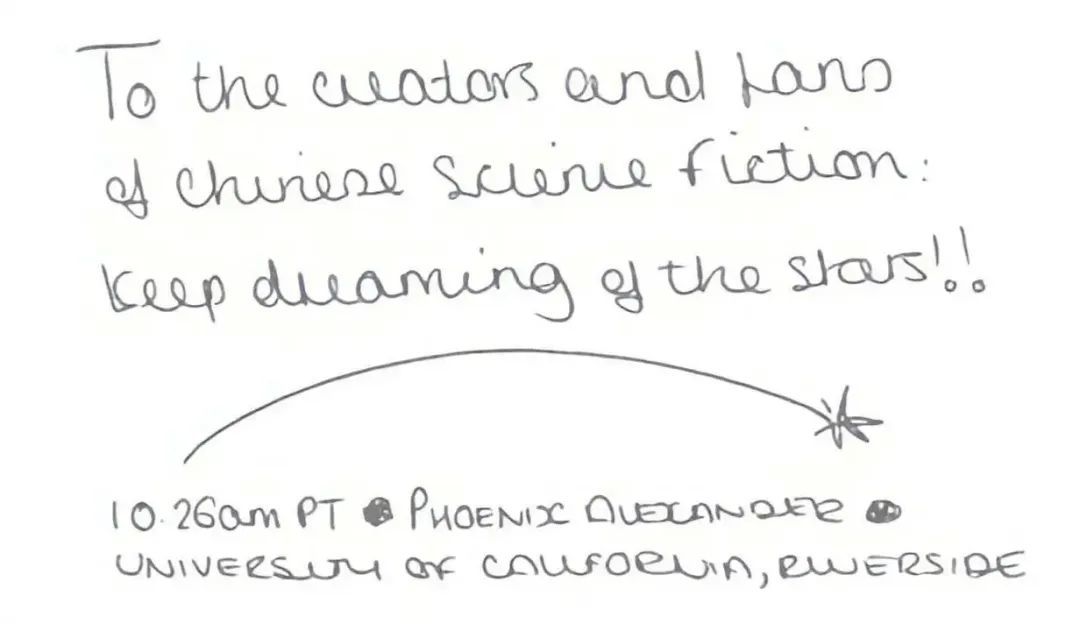 To the creators and fans
of Chinese Science fiction:
Keep dreaming of the stars!!
10.26am PT • PHOENIX ALEXANDER •
UNIVERSITY OF CALIFORNIA, RIVERSIDE